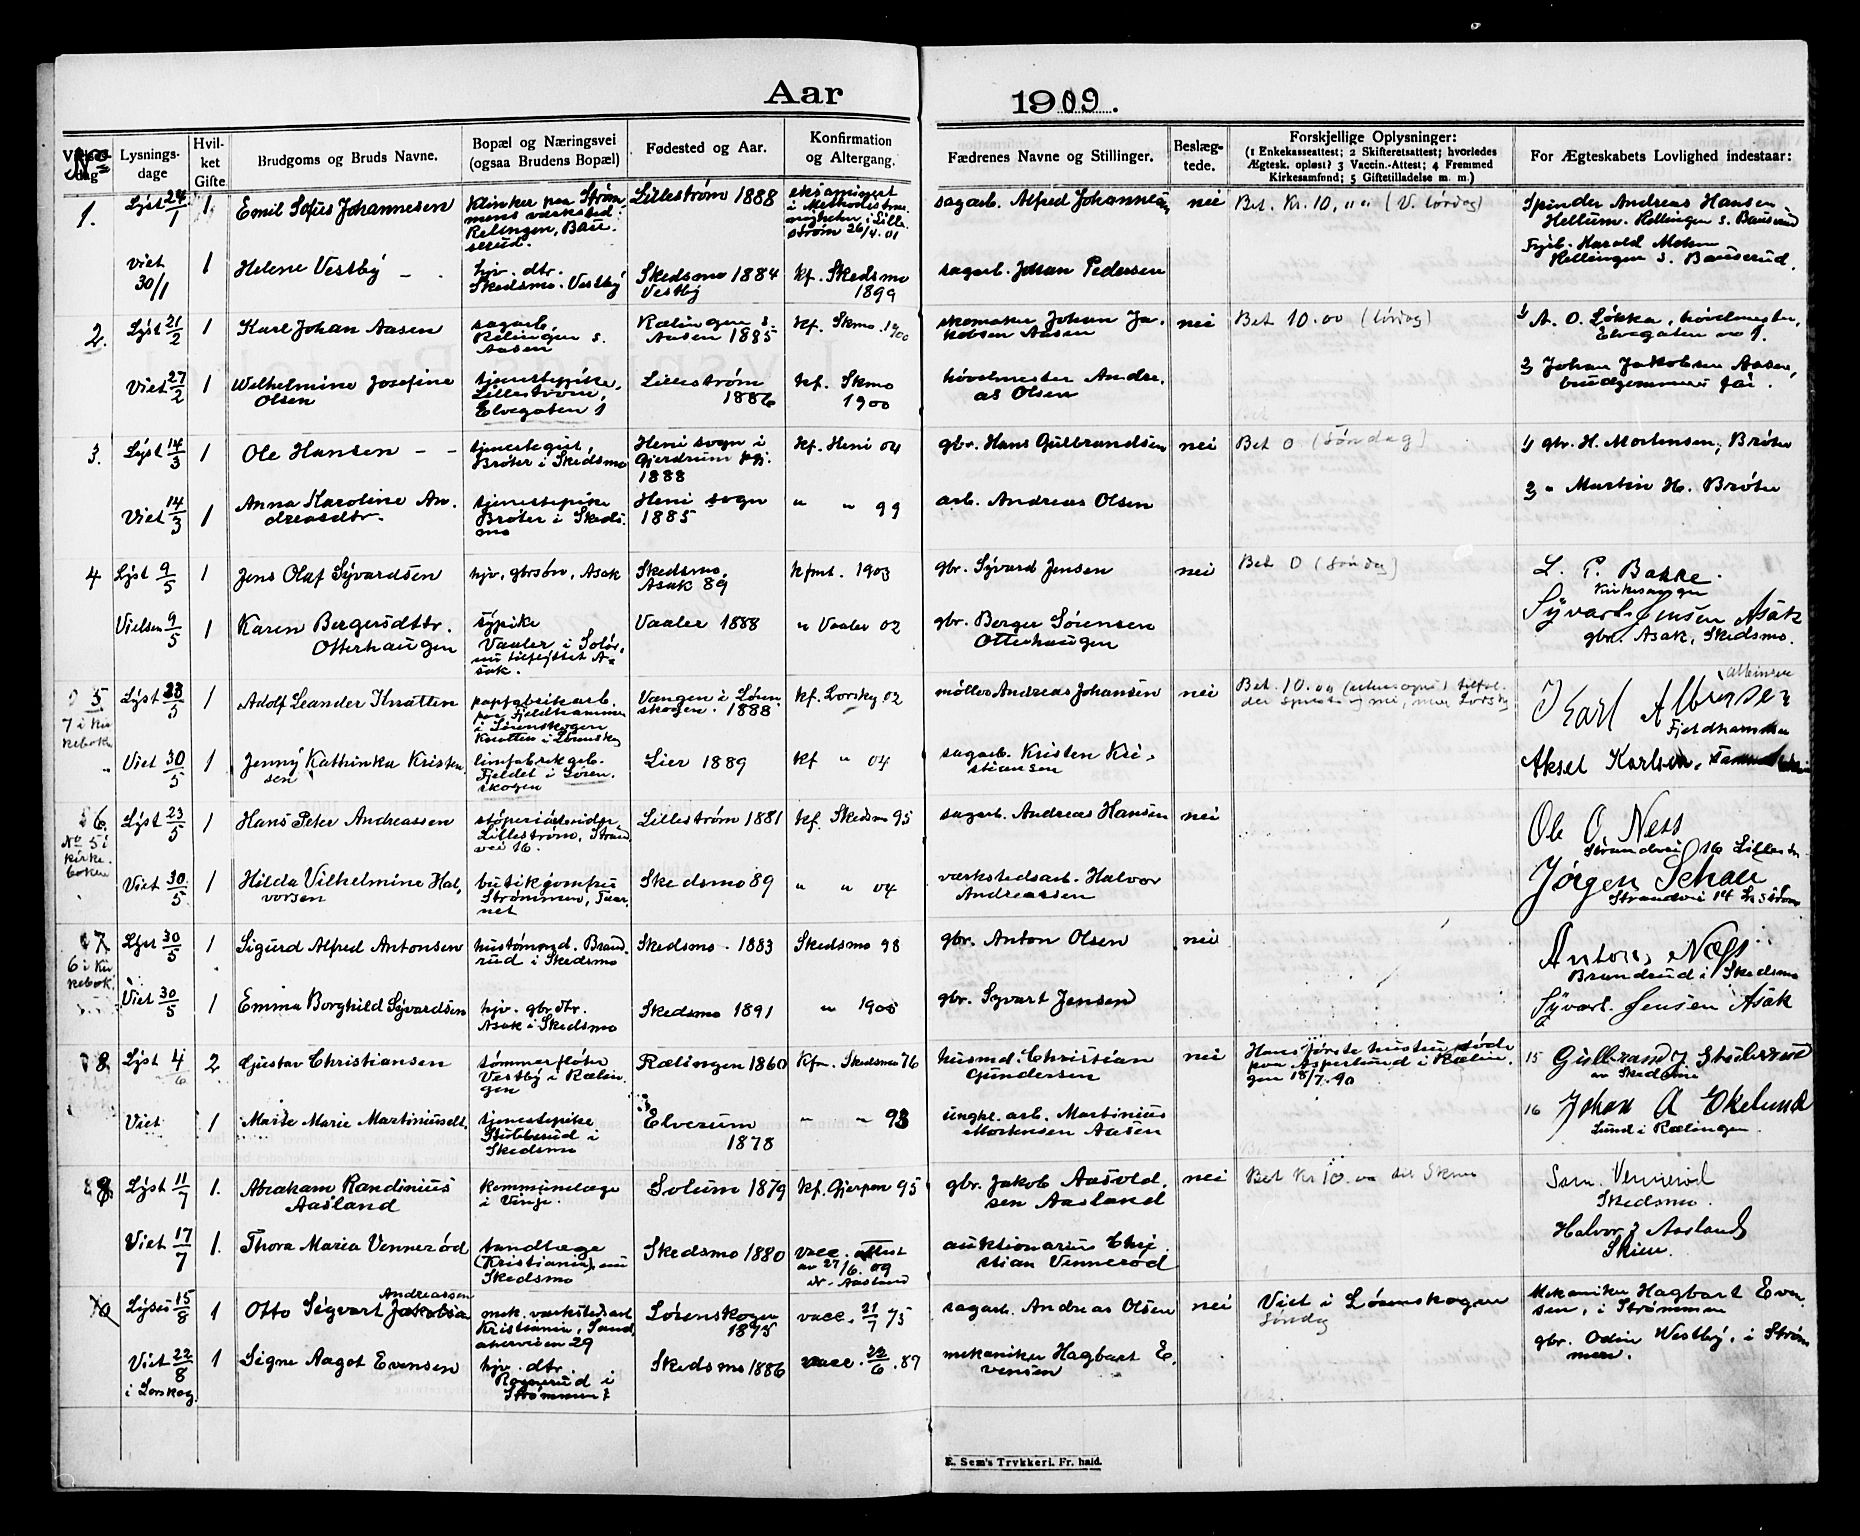 Aar 1909.
No
Lysnings-
dage
Hvil-
ket
Gifte
Brudgoms og Bruds Navne.
Bopæl og Næringsvei
(ogsaa Brudens Bopæl)
Fødested og Aar.
Konfirmation
og Altergang.
Fædrenes Navne og Stillinger.
Beslæg-
tede.
Forskjellige Oplysninger:
(1 Enkekasseattest; 2 Skifteretsattest; hvorledes
Ægtesk. opløst? 3 Vaccin.-Attest; 4 Fremmed
Kirkesamfund; 5 Giftetilladelse m. m.)
For Ægteskabets Lovlighed indestaar:
1.
Lyst 24/1
1
Emil Sofus Johannesen
Klinker paa Strøm
mens værksted.
Relingen, Bau
serud.
Lillestrøm 1888
eksaminert
i Methodistme
nigheten i Lille
strøm 26/4. 01
sagarb. Alfred Johannesen
nei
Bet. Kr. 10, „ „ (V. lørdag)
Spinder Andreas Hansen
Hellum. Rellingen s. Bauserud
Harald Moten
Rellingen s. Bauserud.
Viet
30/1
1
Helene Vestby - -
hjv. dtr.
Skedsmo. Vestby
Skedsmo 1884
Vestby
kf. Skedsmo
1899
sagarb. Johan Pedersen
2.
Lyst 21/2
1
Karl Johan Aasen
sagarb.
Relingen s.
Aasen
Rælingen s.
Aasen 1885
kf. Skmo. 1900
skomaker Johan Ja.
kobsen Aasen
nei
Bet 10.00 (lørdag)
1/ A. O. Løkka, høvelmester,
Elvegaten no 1.
Viet 27/2
1
Wilhelmine Josefine
Olsen
tjenestepike,
Lillestrøm,
Elvegaten 1
Lillestrøm
1886
kf. Skmo
1900
høvlmester Andre.
as Olsen
2/ Johan Jakobsen Aasen,
brudgommens far.
3.
Lyst 14/3
1
Ole Hansen - -
tjenestegut,
Brøter i Skedsmo
Heni sogn i
Gjerdrum pgj.
1888
kf. Heni 04
gbr. Hans Gulbrandsen
nei
Bet 0 (Søndag)
1/ gbr. H. Mortensen, Brøter
Viet 14/3
1
Anna Karoline An
dreasdtr.
tjenestepike
Brøter i Skeds
mo
Heni sogn
1885
„ „ 99
arb. Andreas Olsen
2/ „ Martin H. Brøter
4
Lyst 9/5
1
Jens Olaf Syvardsen
hjv. gbrsøn, Asak
Skedsmo,
Asak 89
kfmt. 1903
gbr. Syvard Jensen
nei
Bet 0 (Søndag)
L. P. Bakke.
Kirkesanger
Vielsen 9/5
1
Karen Bergersdtr.
Otterhaugen
sypike
Vaaler i Solør,
nu tilflyttet A-
sak.
Vaaler 1888
„ Vaaler 02
gbr. Berger Sørensen
Otterhaugen
Syvart Jensen Asak
gbr. Asak, Skedsmo.
5
7 i kir
keboken
Lyst 23/5
1
Adolf Leander Knatten
papfabrikarb.
paa Fjeldhammer
i Lørenskogen
Knatten i Lørenskog
Vangen i Løren
skogen. 1888
kf. Lorskog 02
møller Andreas Johansen
nei
Bet. 10.00
Albinsen
Karl Albinsen
Fjeldhammer
Viet 30/5
1
Jenny Kathinka Kristen
sen
limfabrikarb.
Fjeldet i Løren.
skogen
Lier 1889
kf „ 04
sagarb. Kristen Kri-
stiansen
Aksel Karlsen,
6
No 5 i
kirke.
boken
Lyst 23/5
1
Hans Peter Andreassen
støperiarbeider
Lillestrøm, Strand
vei 16.
Lillestrøm 1881
kf. Skedsmo 95
sagarb. Andreas Hansen
nei
Ole O. Ness
Strandvei 16 Lillestr.
Viet 30/5
1
Hilda Vilhelmine Hal,
vorsen
butikjomfru
Strømmen, Taar
net
Skedsmo 89
„ „ 04
værkstedsarb. Halvor
Andreassen
Jørgen Schau
Strandvei 14
7
6 i kir
kebok.
Lyst 30/5
1
Sigurd Alfred Antonsen
hustømrmd. Brand
rud i Skedsmo
Skedsmo. 1883
Skedsmo 98
gbr. Anton Olsen
nei
Anton Næss
Brandrud i Skedsmo
Viet 30/5
1
Emma Borghild Syvardsen
hjv. gbr. dtr.
Asak i Skedsmo
Skedsmo 1891
„ 1905
gbr. Syvart Jensen
Syvart Jensen Asak
8
Lyst 4/6
2
Gustav Christiansen
tømmerfløter
Vestby i Rælin
gen
Rælingen 1860
Kfm. Skedsmo 76
husmd. Christian
Gundersen
nei
Hans første hustru døde
paa Asperlund i Rælin
gen 18/7. 90
15 Gulbrand J
av Skedsmo
Viet
1
Marte Marie Martiniusdt.
tjenestepike
Stubberud i
Skedsmo
Elverum
1878
„ „ 93
ungk. arb. Martinius
Mortensen Aasen
16 Johan A Ekelund
Lund i Rælingen
9
Lyst 11/7
1.
Abraham Randinius
Aasland
kommunelæge
i Vinje.
Solum 1879
kf. Gjerpen 95
gbr. Jakob Aasvold
sen Aasland
nei
Bet Kr 10.00 til Skmo
Sam. Vennerød
Skedsmo.
Viet 17/7
1.
Thora Maria Vennerød
tandlæge
(Kristiania), nu
Skedsmo
Skedsmo 1880
vacc. attest
av 27/6. 09
dr. Aasland
auktionarius Chri
stian Vennerød
Halvor J Aasland
Skien.
10
Lyses 15/8
1
Andreassen
Otto Sigvart Jakobsen
mek. værkstedsarb
Kristiania, Sand
akerveien 29
Lørenskogen
1875
vacc. 21/7 75
sagarb. Andreas Olsen
nei
Viet i Lørenskogen
Søndag
Mekaniker Hagbart Even
sen, i Strømmen
Viet 22/8
i Lorskog
1
Signe Aagot Evensen
hjv. dtr.
Rognerud i
Strømmen
Skedsmo 1886
vacc. 22/6. 87
mekaniker Hagbart E.
vensen
gbr. Odin Westby, i Strøm
men.
E. Sem's Trykkeri. Fr. hald.